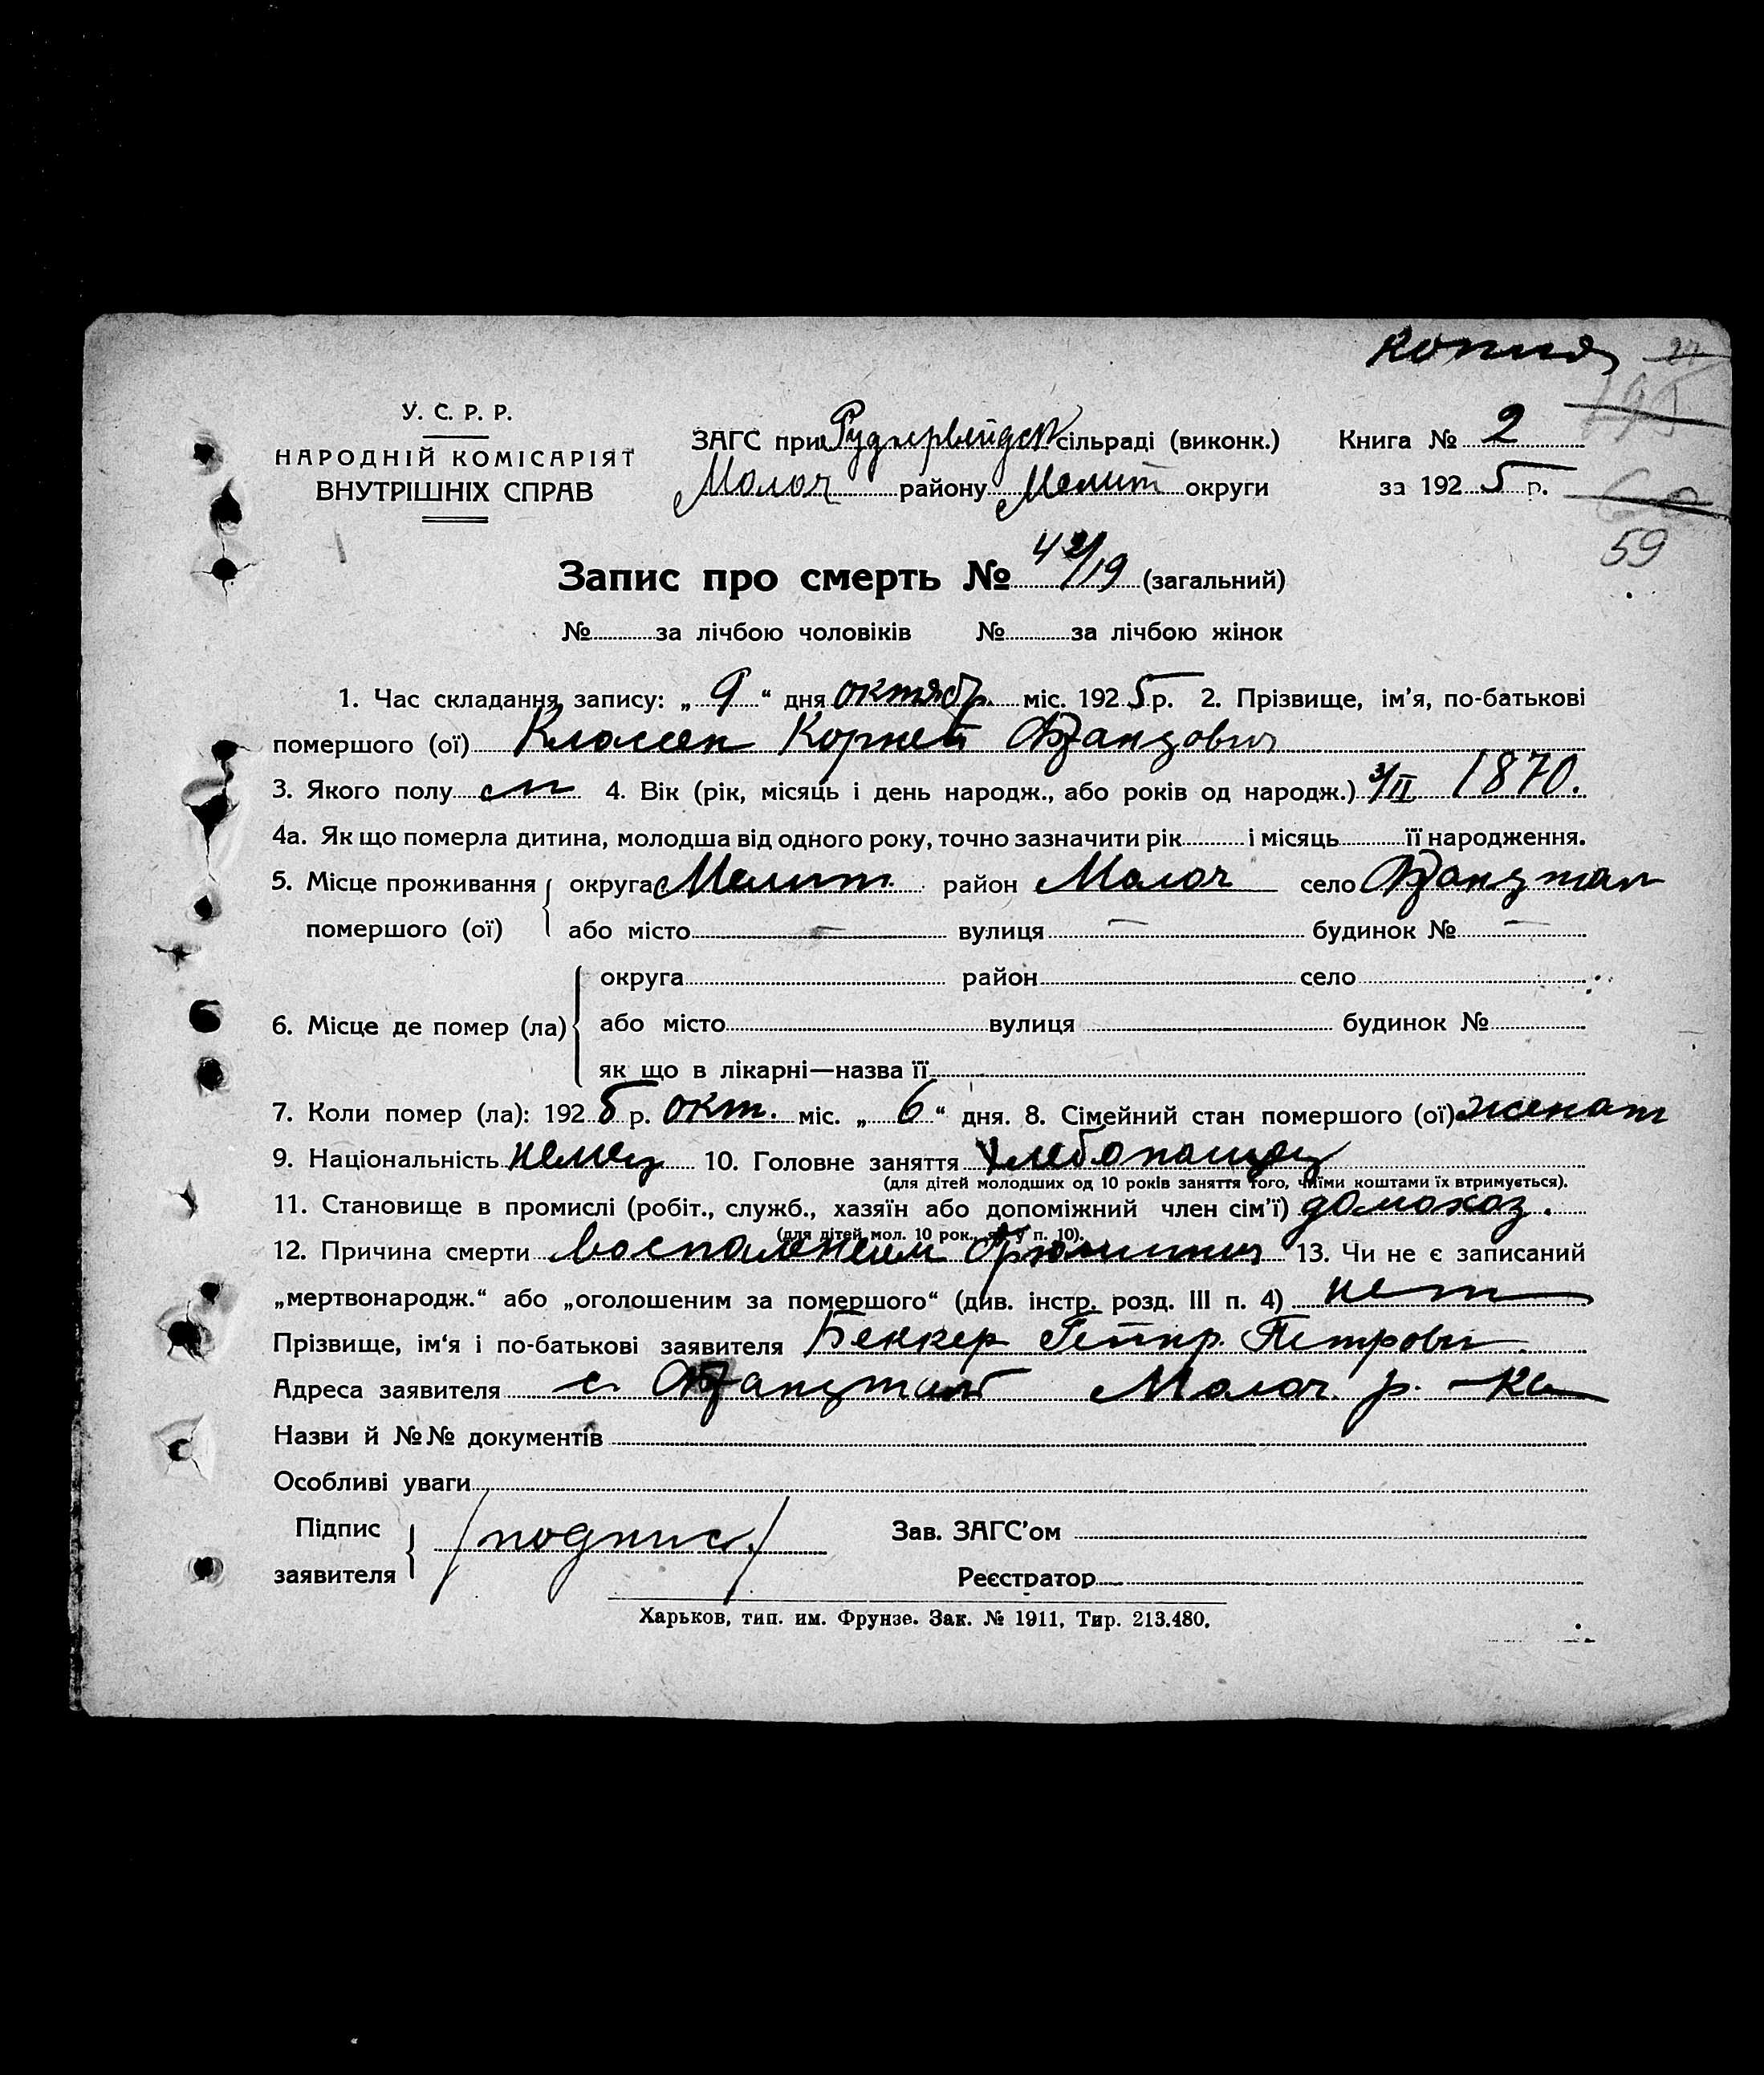 копия 27
195
У. С. Р. Р.
НАРОДНІЙ КОМІСАРІЯТ
ВНУТРІШНІХ СПРАВ
ЗАГС при Руднервейдск сільраді (виконк.) Книга № 2
Молоч району Мелит округи за 1925 р.
60
59
Запис про смерть № 42/19 (загальний)
№ за лічбою чоловіків № за лічбою жінок
1. Час складання запису: „9“ дня октябр. міс. 1925 р. 2. Прізвище, ім'я, по-батькові
помершого (ої) Классен Корней Францович
3. Якого полу м 4. Вік (рік, місяць і день народж., або років од народж.) 3/II 1870.
4а. Як що померла дитина, молодша від одного року, точно зазначити рік і місяць її народження.
5. Місце проживання округа Мелит. район Молоч село Францтал
помершого (ої) або місто — вулиця — будинок № —
округа район село
6. Місце де помер (ла) або місто вулиця будинок №
як що в лікарні—назва її
7. Коли помер (ла): 1925 р. окт. міс. „6“ дня. 8. Сімейний стан помершого (ої) женат
9. Національність немец 10. Головне заняття хлебопашец
(для дітей молодших од 10 років заняття того, чиїми коштами їх втримується).
11. Становище в промислі (робіт., служб., хазяїн або допоміжний член сім'ї) домохоз.
(для дітей мол. 10 рок., як у п. 10).
12. Причина смерти воспалением брюшины 13. Чи не є записаний
„мертвонародж.“ або „оголошеним за помершого“ (див. інстр. розд. III п. 4) нет
Прізвище, ім'я і по-батькові заявителя Беккер Гейнр. Петрович
Адреса заявителя с. Францтал Молоч. р.-ка
Назви й №№ документів
Особливі уваги
Підпис
заявителя /подпись/
Зав. ЗАГС'ом
Реєстратор
Харьков, тип. им. Фрунзе. Зак. № 1911, Тир. 213.480.